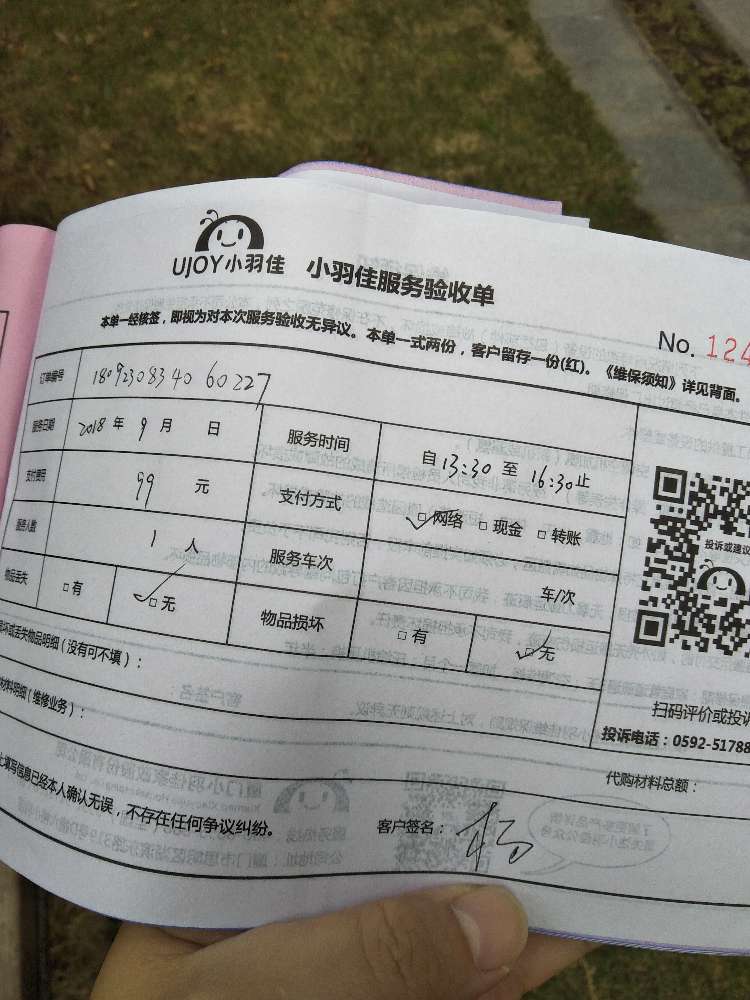 UJOY小羽佳 小羽佳服务验收单
No. 124
本单一经核签，即视为对本次服务验收无异议。本单一式两份，客户留存一份(红)。《维保须知》详见背面。
订单编号 1809230834060227
服务日期 2018 年 9 月 日 服务时间 自 13:30 至 16:30 止
支付费用 99 元 支付方式 ☑网络 □现金 □转账
服务人数 1 人 服务车次 车/次
物品丢失 □有 ☑无 物品损坏 □有 ☑无
投诉或建议
坏或丢失物品明细（没有可不填）：
材料明细（维修业务）：
扫码评价或投诉
投诉电话：0592-51788
代购材料总额：
上填写信息已经本人确认无误，不存在任何争议纠纷。 客户签名： 杨